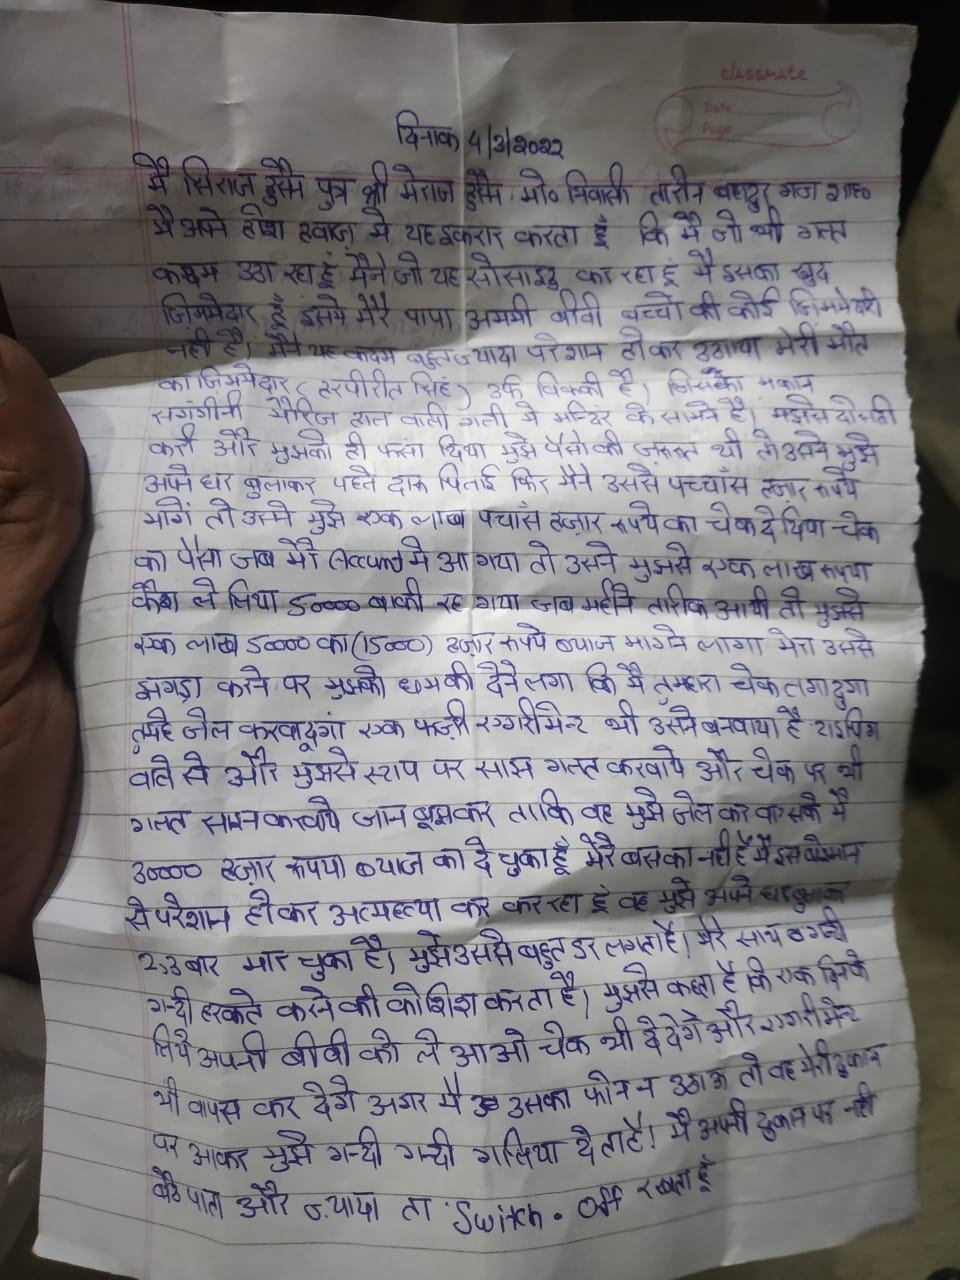 CLASSMATE
Date
Page
दिनाक 4/3/2022
मै सिराज हुसैन पुत्र श्री मेराज हुसैन मो० निवासी तारीन बहादुर गंज शाह०
मै अपने होश हवाज मे यह इकरार करता हूँ कि मै जो भी गलत
कदम उठा रहा हूं मैने जो यह सोसाइड कर रहा हूं मै इसका खुद
जिममेदार हूँ इसमे मेरे पापा अममी बीवी बच्चो की कोई जिममेदारी
नही है। मैने यह कदम बहुत ज्यादा परेशान होकर उठाया मेरी मौत
का जिममेदार (हरपीरीत सिंह) उर्फ विक्की है। जिसका मकान
मैरिज हाल वाली गली मे मन्दिर के सामने है। मुझसे दोस्ती
करी और मुझको ही फसा दिया मुझे पैसो की जरूरत थी तो उसने मुझे
अपने घर बुलाकर पहले दारू पिलाई फिर मैने उससे पच्चाँस हजार रूपये
मांगे तो उसने मुझे एक लाख पचाँस हजार रूपये का चेक दे दिया चेक
का पैसा जब मेरे Accund मे आ गया तो उसने मुझसे एक लाख रूपया
कैश ले लिया 50000 बाकी रह गया जब महीने तारीक आयी तो मुझसे
एक लाख 50000 का (15000) हजार रूपये ब्याज मागने लागा मेरा उससे
झगड़ा करने पर मुझको धमकी देने लगा कि मै तुमहारा चेक लगा दुगा
तुमहे जेल करवादूगां एक फर्जी एग्गरीमेन्ट भी उसने बनवाया है टाइपिग
वाले से और मुझसे स्टाप पर साइन गलत करवाये और चेक पर भी
गलत साइन करवाये जान बूझकर ताकि वह मुझे जेल करवा सके मै
30000 हजार रूपया ब्याज का दे चुका हूँ मेरे बस का नही है मै इस बेइमान
से परेशान होकर अत्महत्या कर कर रहा हूं वह मुझे अपने घर बुलाकर
2,3 बार मार चुका है। मुझे उससे बहुत डर लगता है। मेरे साथ
गन्दी हरकते करने की कोशिश करता है। मुझसे कहता है कि एक दिन के
लिये अपनी बीवी को ले आओ चेक भी दे देगें और एग्गरीमेन्ट
भी वापस कर देगे अगर मै उसका फोन न उठाऊ तो वह मेरी दुकान
पर आकर मुझे गन्दी गन्दी गालिया देता है। मै अपनी दुकान पर नही
बैठे पाता और ज्यादा ता Switch. Off रखता हूँ